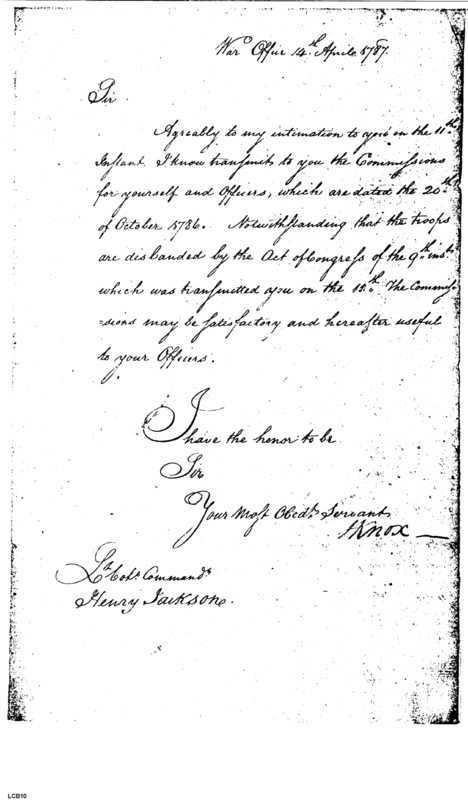 War Office 14th April 1787.
Sir
Agreably to my intimation to you on the 11th
Instant. I know transmit to you the Commissions
for yourself and Officers, which are dated the 20th
of October 1786. Notwithstanding that the troops
are disbanded by the Act of Congress of the 9th inst
which was transmitted you on the 15th. The Commis
=sions may be satisfactory and hereafter useful
to your Officers.
I have the honor to be
Sir
Your Most Obedt Servant
HKnox
Lt Colo Commandt
Henry Jackson.
LCB10